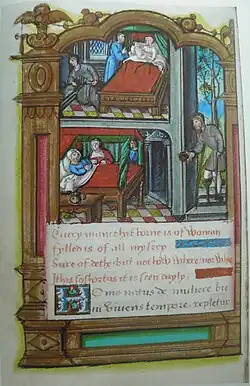 Every man that borne is of woman
fylled is of all mysery
Sure of dethe but not how where nor
this so shortas it is seen dayly
Homo natus de muliere bre
vi vivens tempore repletur